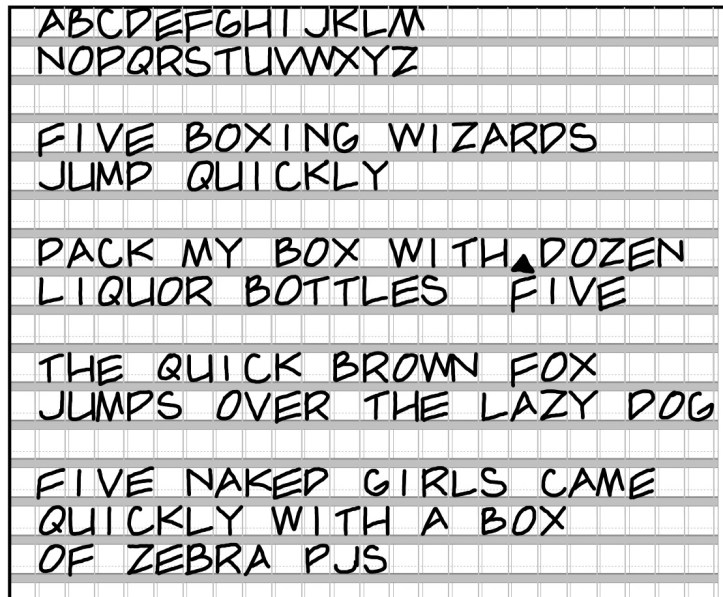 ABCDEFGHIJKLM
NOPQRSTUVWXYZ
FIVE BOXING WIZARDS
JUMP QUICKLY
PACK MY BOX WITH DOZEN
LIQUOR BOTTLES FIVE
THE QUICK BROWN FOX
JUMPS OVER THE LAZY DOG
FIVE NAKED GIRLS CAME
QUICKLY WITH A BOX
OF ZEBRA PJS